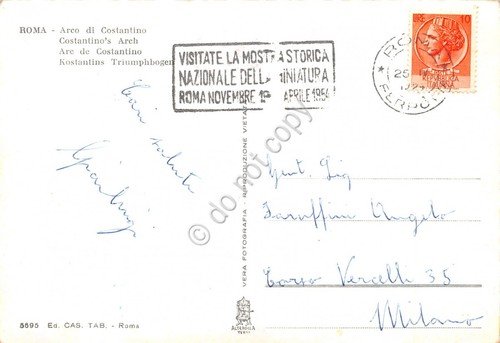 ROMA - Arco di Costantino
Costantino's Arch
Arc de Costantino
Kostantins Triumphbogen
VISITATE LA MOSTRA STORICA
NAZIONALE DELLA MINIATURA
ROMA NOVEMBRE 1953 APRILE 1954
LIRE 10
ROMA
25
FERROVIA
Cari saluti
Gianluigi
Gent. Sig
Taruffini Angelo
Corso Vercelli 35
Milano
VERA FOTOGRAFIA - RIPRODUZIONE VIETATA
do not copy
ALTEROCCA
TERNI
5595 Ed. CAS. TAB. - Roma